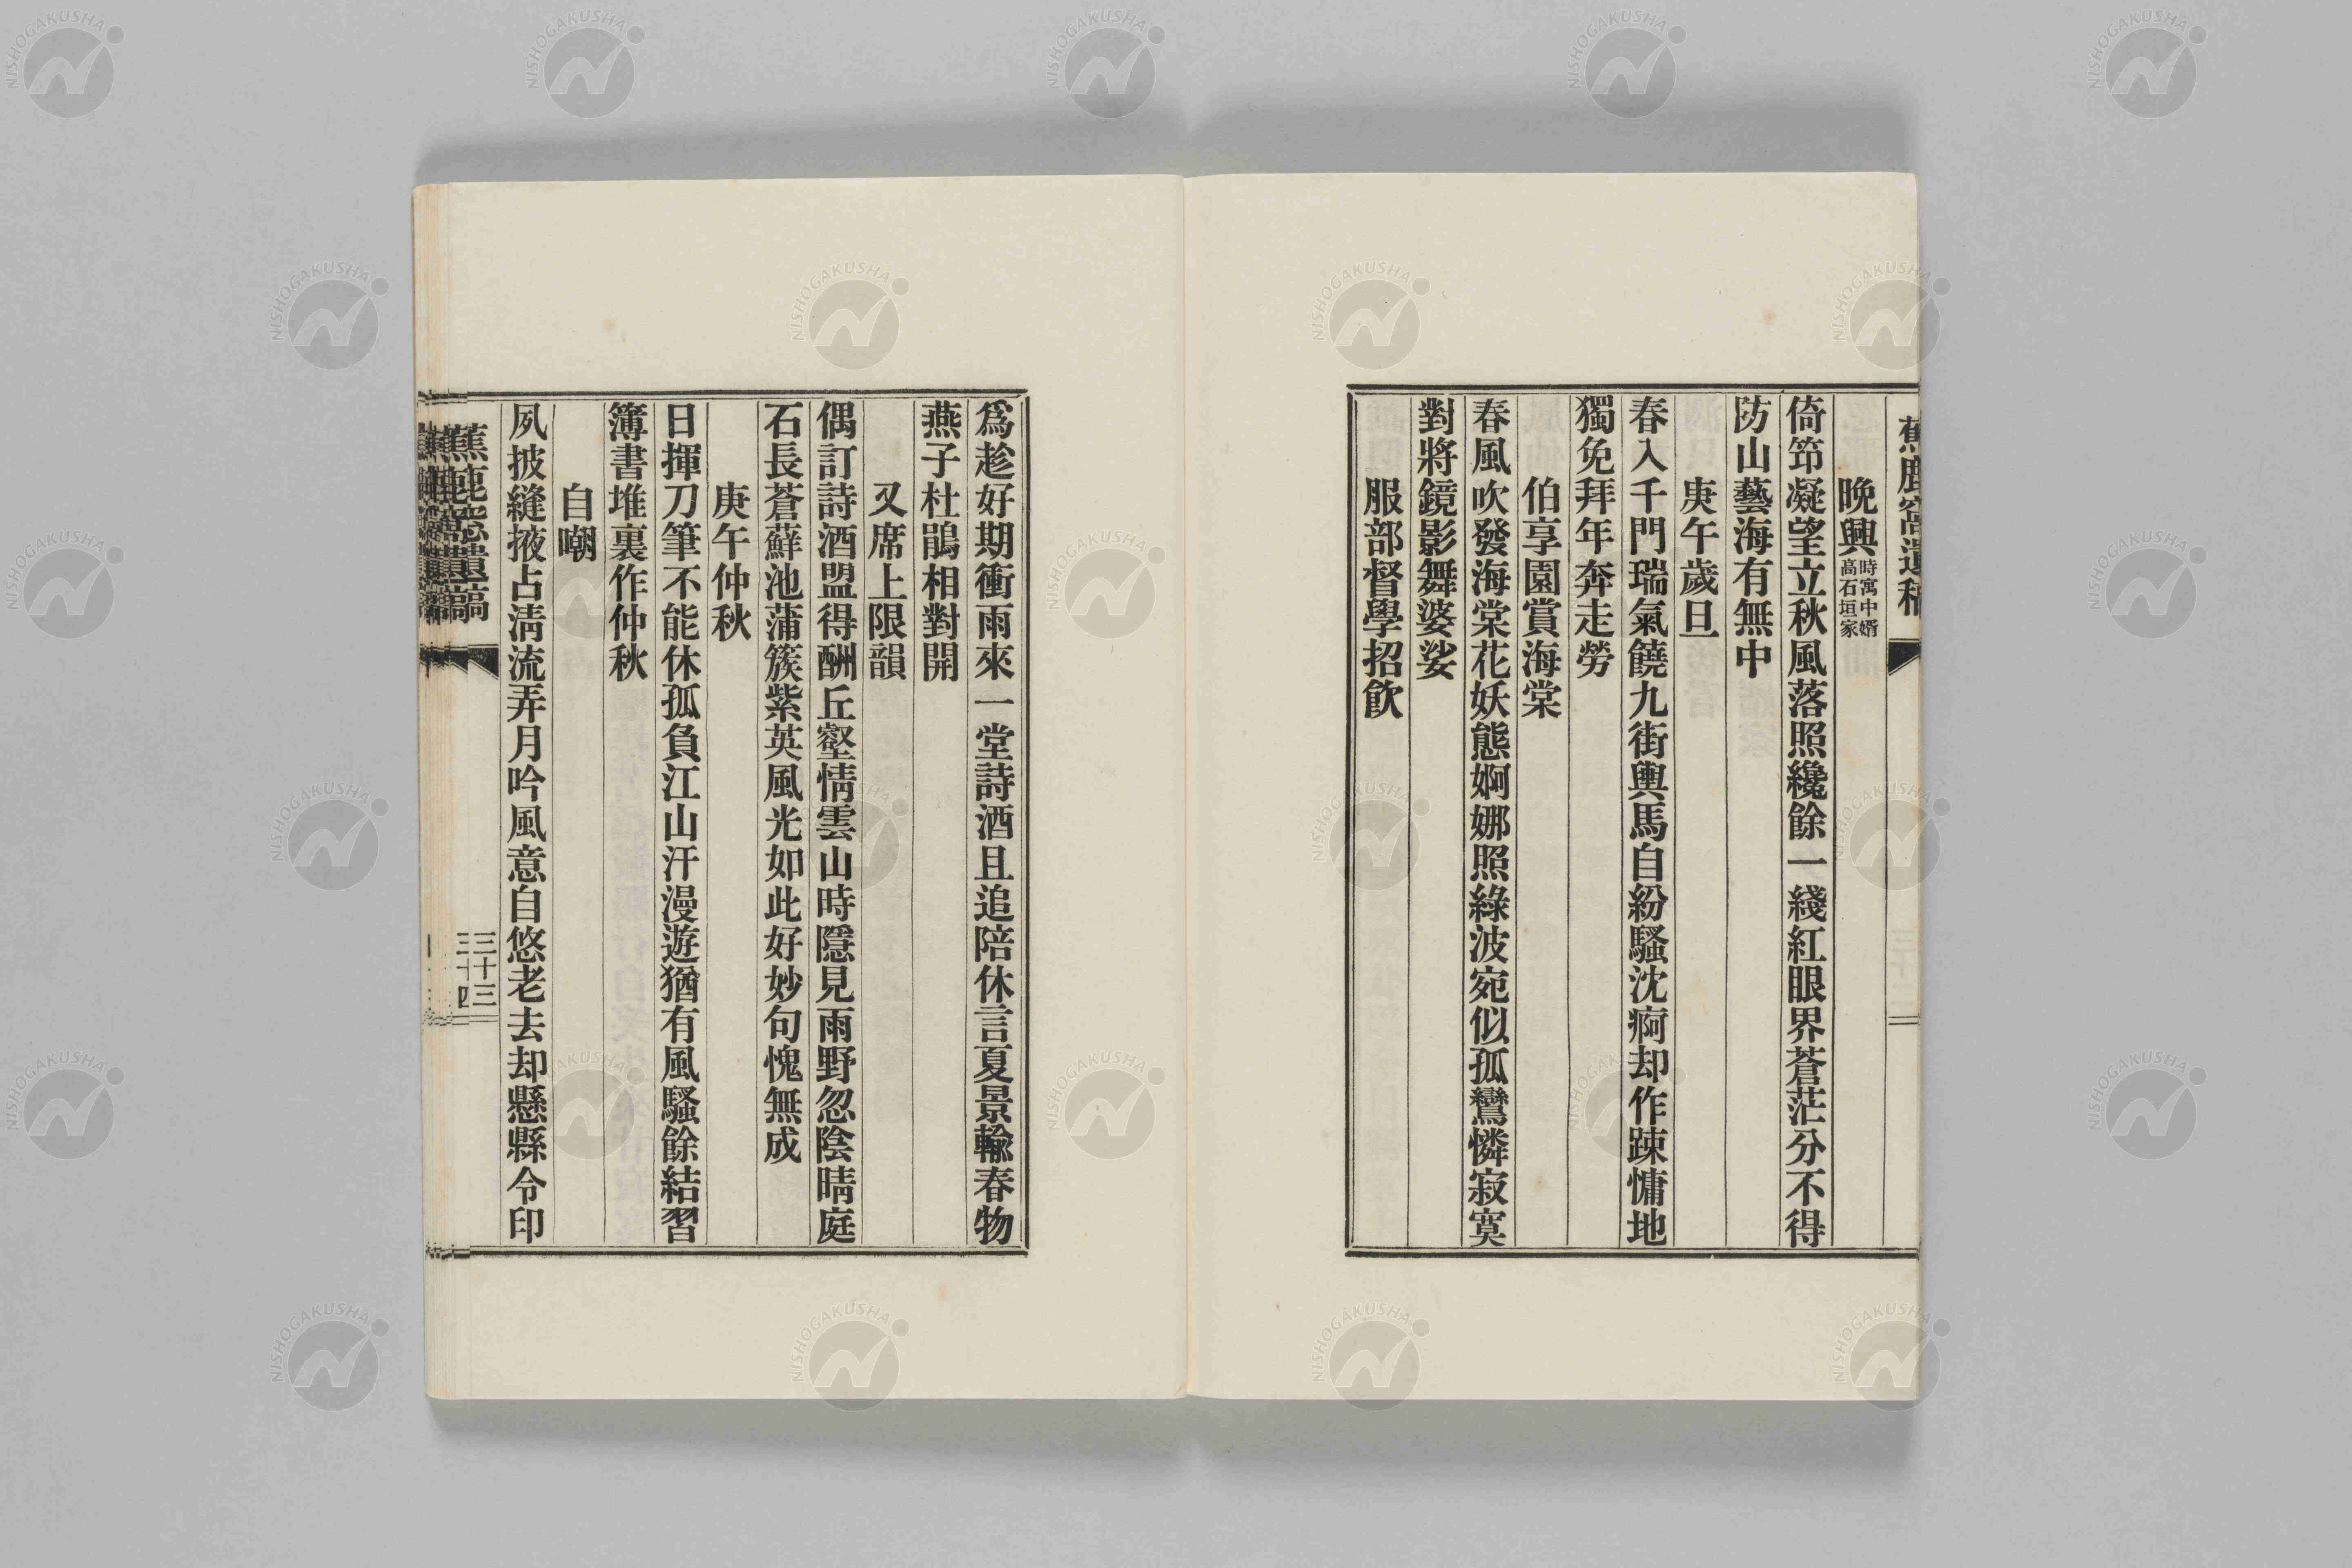 蕉鹿窩遺稿
晩興 時寓中婿高石垣家
倚筇凝望立秋風落照纔餘一綫紅眼界蒼茫分不得
防山藝海有無中
庚午歲旦
春入千門瑞氣饒九街輿馬自紛騷沈痾却作踈慵地
獨免拜年奔走勞
伯享園賞海棠
春風吹發海棠花妖態婀娜照綠波宛似孤鸞憐寂寞
對將鏡影舞婆娑
服部督學招飮
爲趁好期衝雨來一堂詩酒且追陪休言夏景輸春物
燕子杜鵑相對開
又席上限韻
偶訂詩酒盟得酬丘壑情雲山時隱見雨野忽陰晴庭
石長蒼蘚池蒲簇紫英風光如此好妙句愧無成
庚午仲秋
日揮刀筆不能休孤負江山汗漫遊猶有風騷餘結習
簿書堆裏作仲秋
自嘲
夙披縫掖占淸流弄月吟風意自悠老去却懸縣令印
三十三
三十四
NISHOGAKUSHA